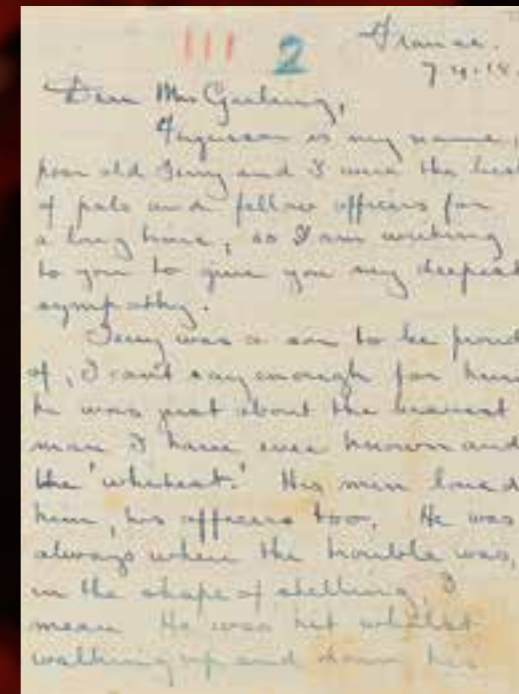 III 2 France.
7.4.18.
Dear Mrs
Ferguson is my name,
poor old Terry and I were the best
of pals and fellow officers for
a long time, so I am writing
to you to give you my deepest
sympathy.
Terry was a son to be proud
of, I can't say enough for him
he was just about the bravest
man I have ever known and
the 'whitest.' His men loved
him, his officers too. He was
always where the trouble was,
in the shape of shelling, I
mean. He was hit whilst
walking up and down his